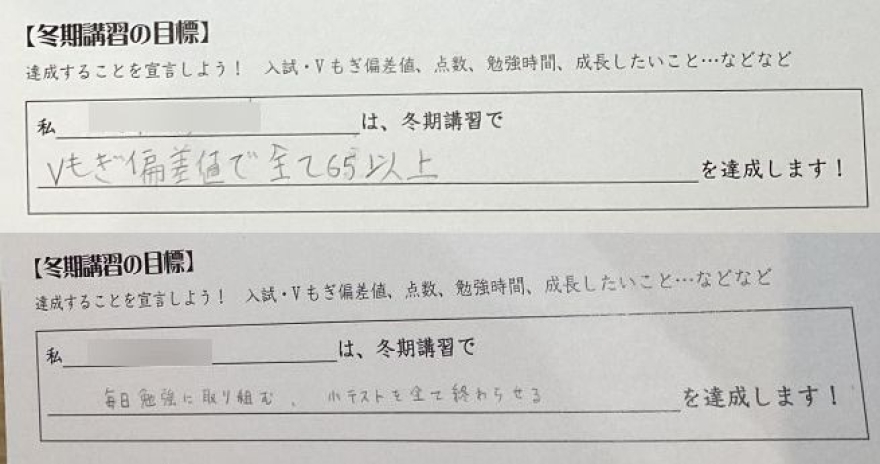 【冬期講習の目標】
達成することを宣言しよう! 入試・Vもぎ偏差値、点数、勉強時間、成長したいこと…などなど
私 は、冬期講習で
Vもぎ偏差値で全て65以上 を達成します!
【冬期講習の目標】
達成することを宣言しよう! 入試・Vもぎ偏差値、点数、勉強時間、成長したいこと…などなど
私 は、冬期講習で
毎日勉強に取り組む、小テストを全て終わらせる を達成します!